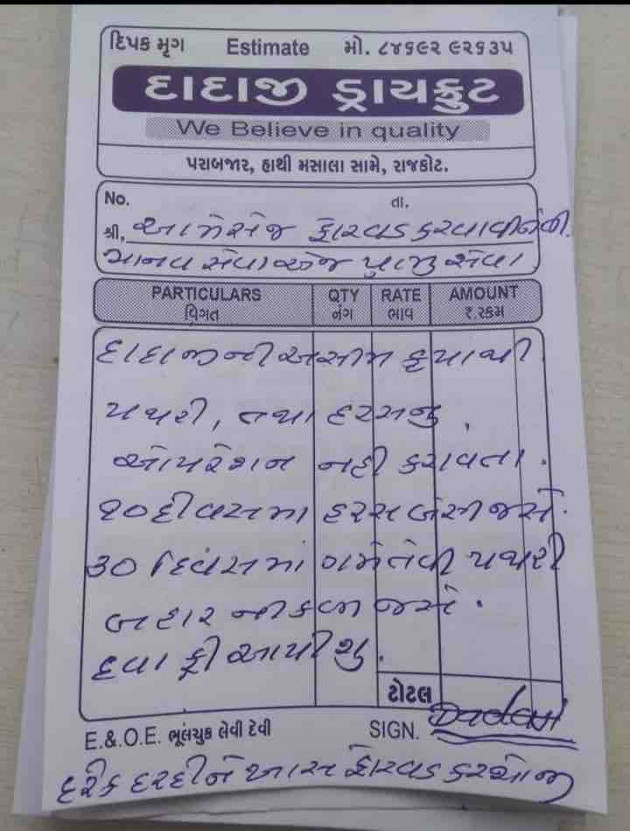 દિપક મૃગ Estimate મો. ૮૪૬૯૨ ૯૨૬૩૫
દાદાજી ડ્રાયફ્રુટ
We Believe in quality
પરાબજાર, હાથી મસાલા સામે, રાજકોટ.
No. તા.
શ્રી, આ મેસેજ ફોરવડ કરવા વીનંતી.
માનવ સેવા એજ પ્રભુ સેવા
PARTICULARS QTY RATE AMOUNT
વિગત નંગ ભાવ રૂ.રકમ
દાદાજીની અસીમ કૃપાથી
પથરી, તથા હરસનું
ઓપરેશન નહી કરાવતા.
૧૦ દીવસમા હરસ બેસી જશે.
૩૦ દિવસમાં ગમેતેવી પથરી
બહાર નીકળી જશે.
દવા ફ્રી આપીશુ.
ટોટલ
E.&.O.E. ભૂલચુક લેવી દેવી SIGN. Dadaji
દરેક દરદીને આ ફોરવડ કરશોજી